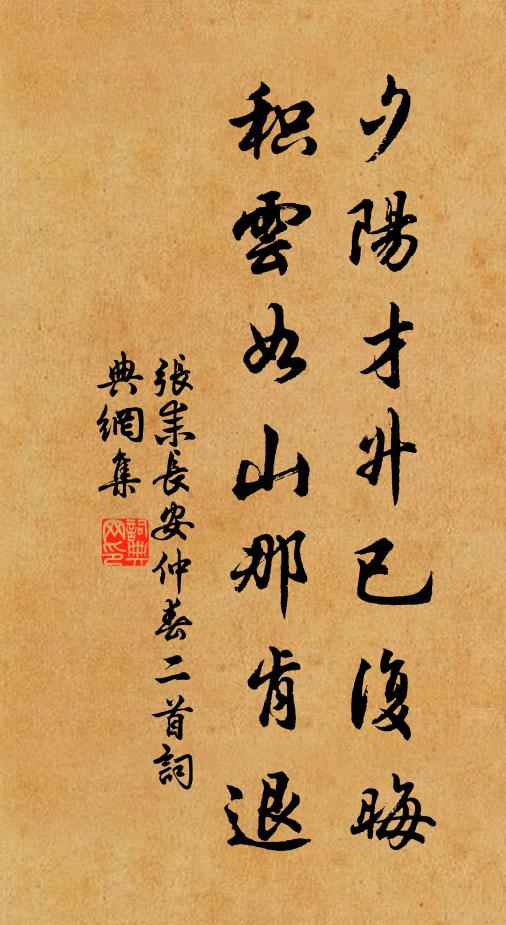 夕陽才升已復晦
积雲如山那肯退
張耒長安仲春二首詞
典網集
詞典網印